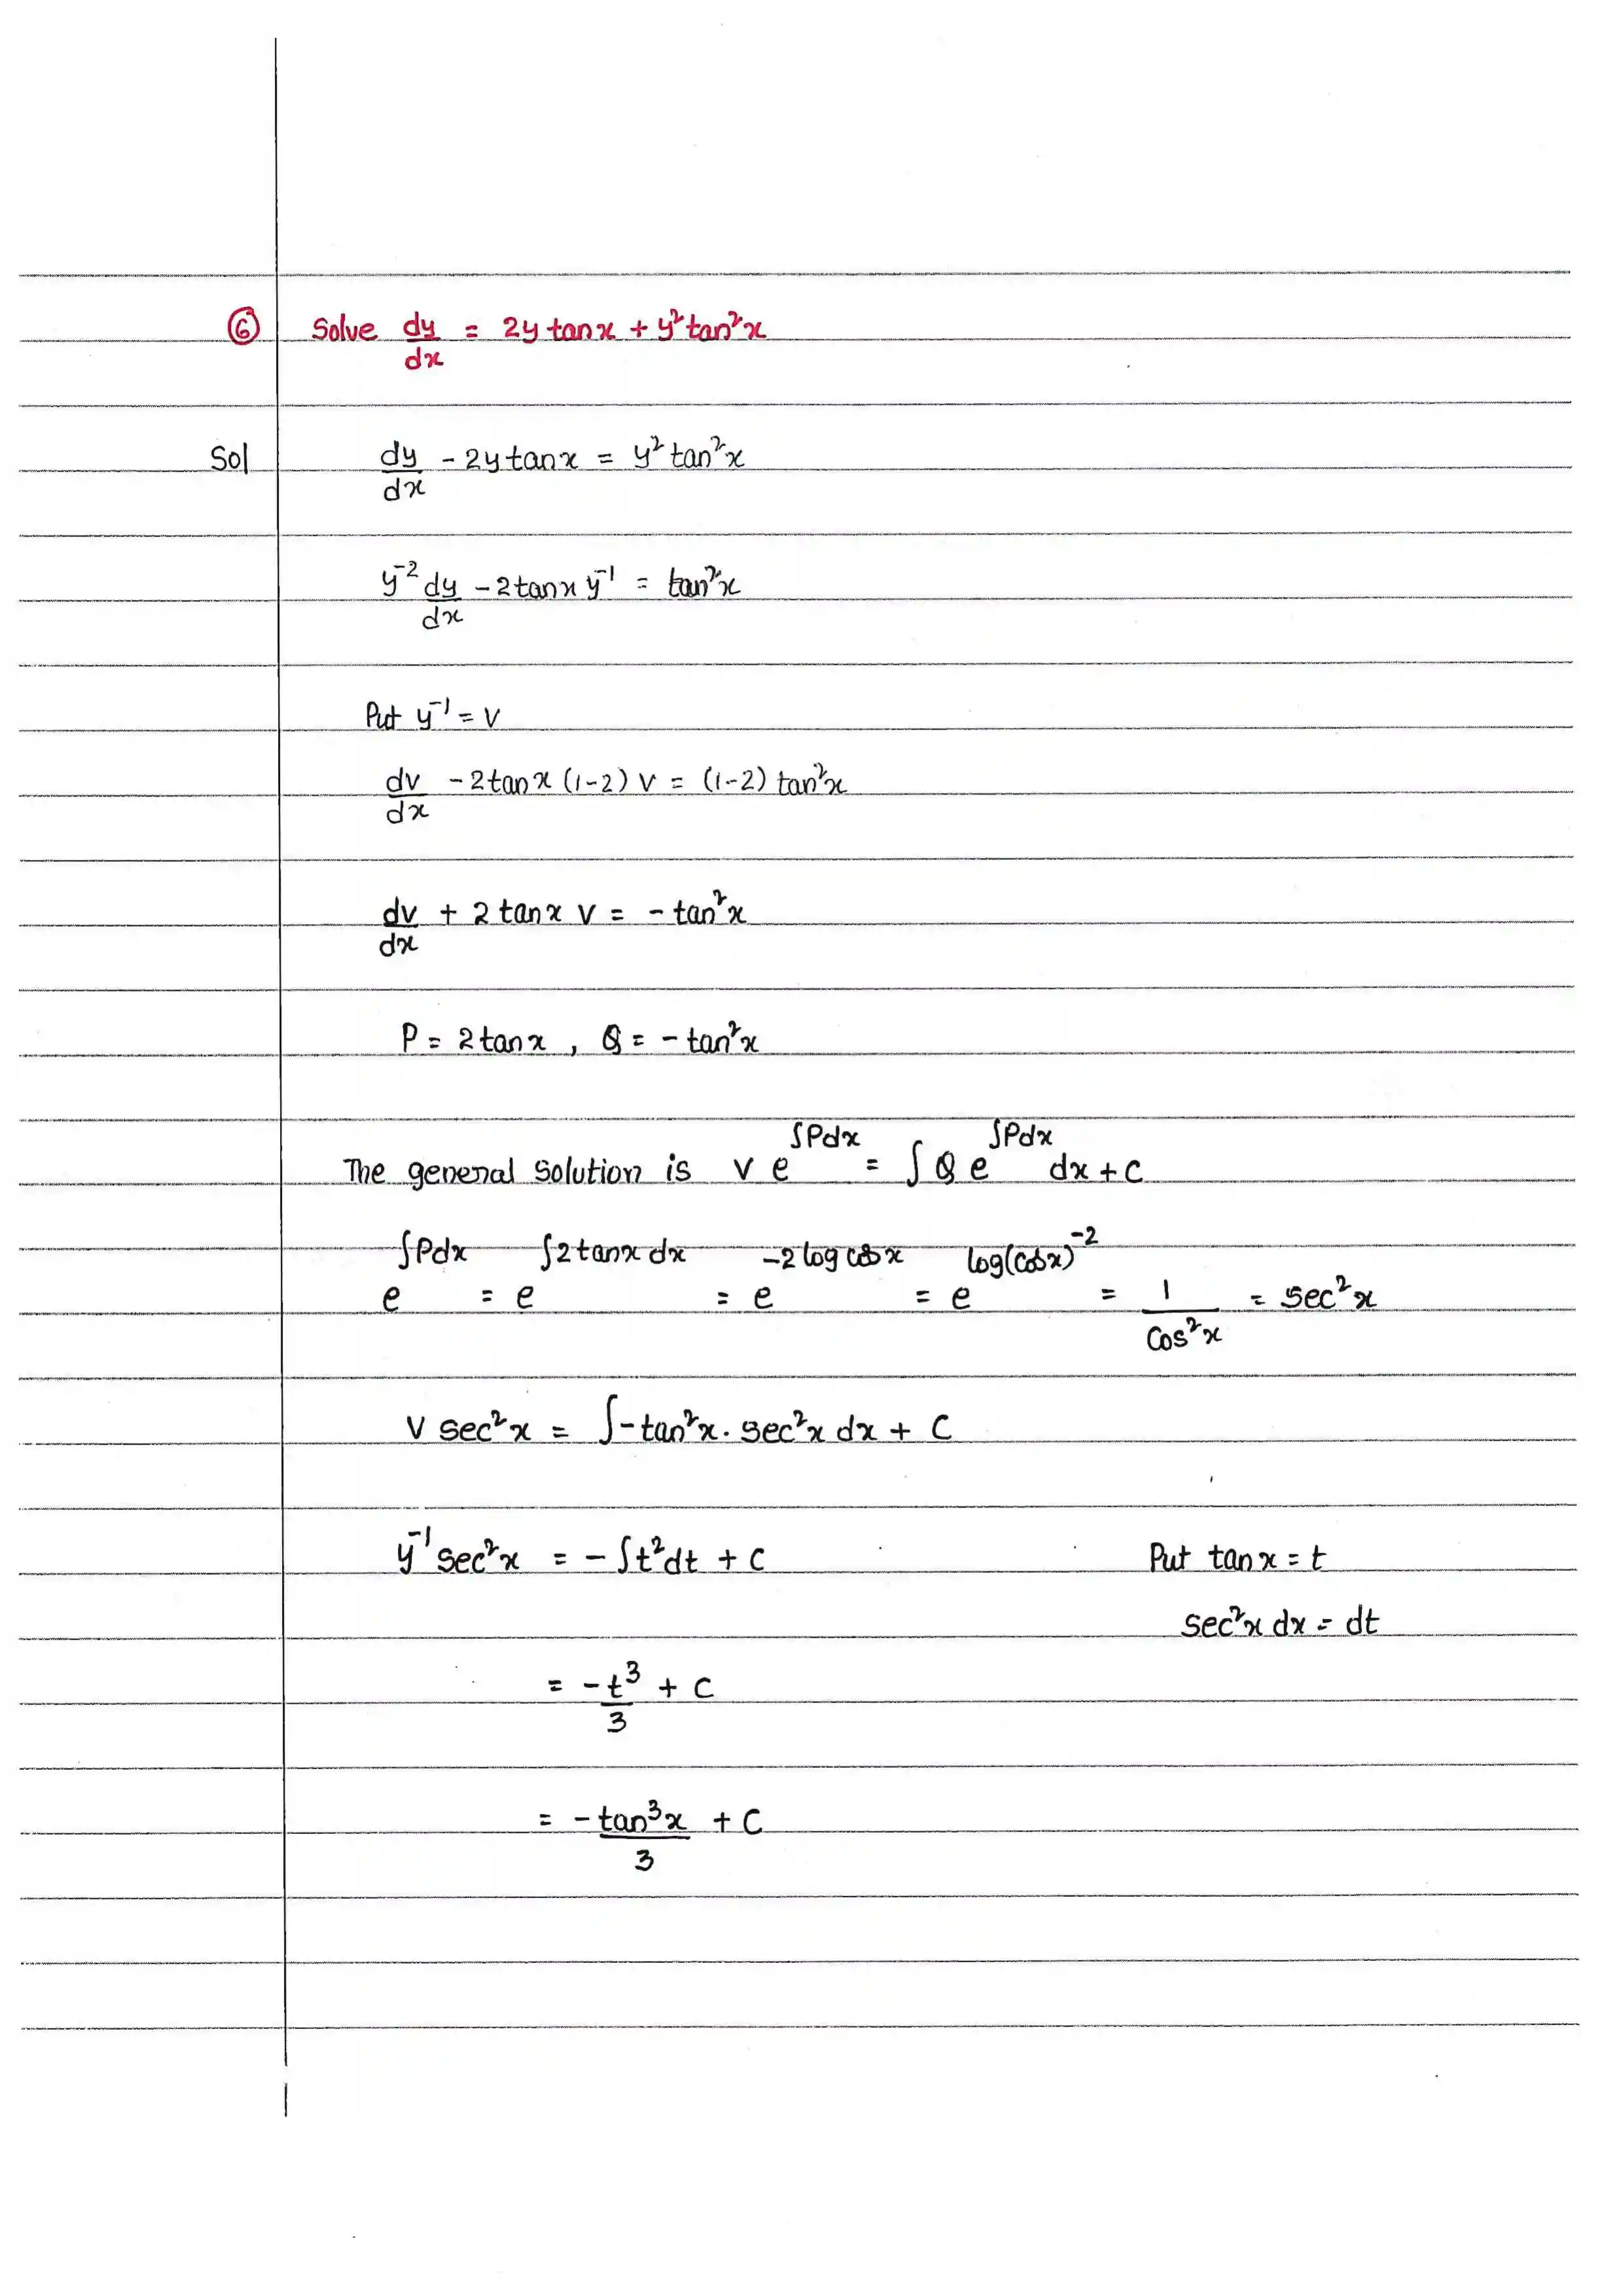 ⑥ Solve dy/dx = 2y tanx + y² tan²x
Sol dy/dx - 2y tanx = y² tan²x
y⁻² dy/dx - 2tanx y⁻¹ = tan²x
Put y⁻¹ = v
dv/dx - 2tanx (1-2) v = (1-2) tan²x
dv/dx + 2 tanx v = - tan²x
P = 2tanx , Q = - tan²x
The general solution is v e^∫Pdx = ∫Q e^∫Pdx dx + c
e^∫Pdx = e^∫2tanx dx = e^-2 log cosx = e^log(cosx)⁻² = 1/Cos²x = sec²x
v sec²x = ∫-tan²x . sec²x dx + C
y⁻¹ sec²x = - ∫t²dt + c Put tanx = t
sec²x dx = dt
= -t³/3 + c
= - tan³x/3 + C